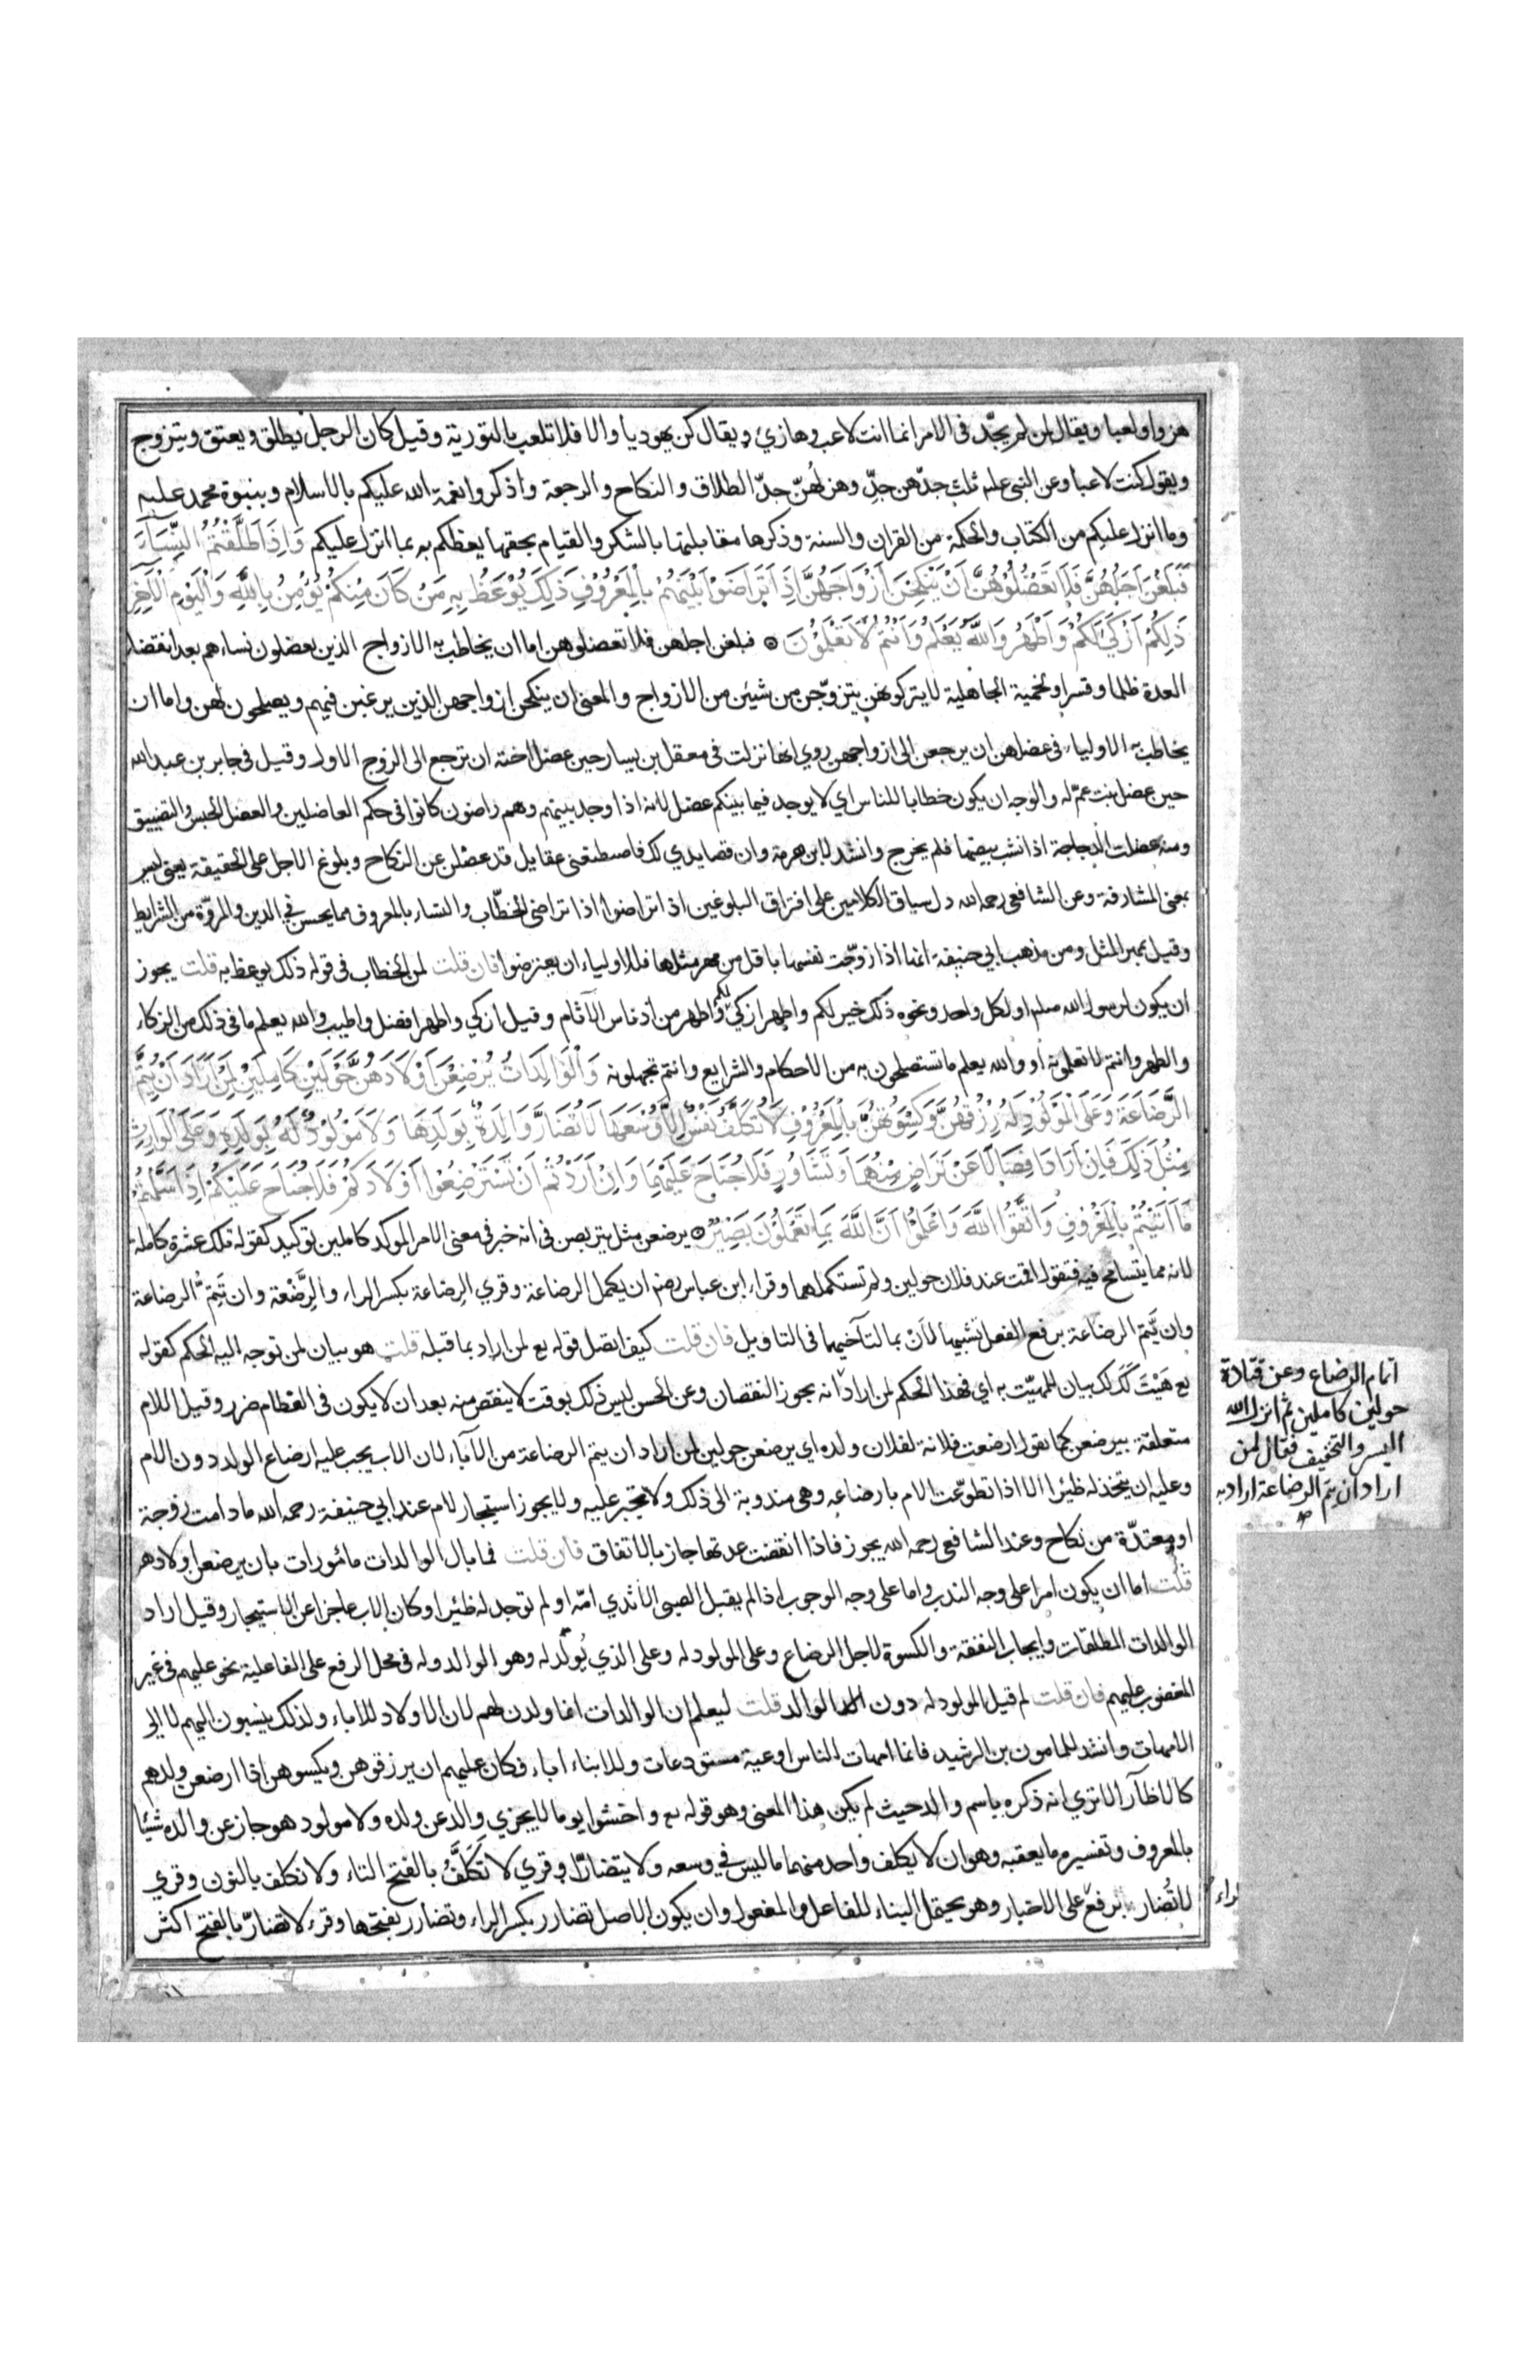 هزوا ولعبا ويقال لمن لم يجدّ فى الامر انما انت لاعب وهازئ ويقال كن يهوديا والا فلا تلعب بالتورية وقيل كان الرجل يطلق ويعتق ويتزوج
ويقول كنت لاعبا وعن النبى علم ثلث جدّهن جدّ وهزلهنّ جدّ الطلاق والنكاح والرجعة واذكروا نعمة الله عليكم بالاسلام وبنبوة محمد عليه
وما انزل عليكم من الكتاب والحكمة من القران والسنة وذكرها مقابلتها بالشكر والقيام بحقها يعظكم به بما انزل عليكم وَاِذَا طَلَّقْتُمُ النِّسَاءَ
فَبَلَغْنَ اَجَلَهُنَّ فَلَا تَعْضُلُوْهُنَّ اَنْ يَنْكِحْنَ اَزْوَاجَهُنَّ اِذَا تَرَاضَوْا بَيْنَهُمْ بِالْمَعْرُوْفِ ذَلِكَ يُوْعَظُ بِهِ مَنْ كَانَ مِنْكُمْ يُؤْمِنُ بِاللَّهِ وَالْيَوْمِ الْاٰخِرِ
ذَلِكُمْ اَزْكَى لَكُمْ وَاَطْهَرُ وَاللَّهُ يَعْلَمُ وَاَنْتُمْ لَا تَعْلَمُوْنَ ۞ فبلغن اجلهن فلا تعضلوهن اما ان يخاطب به الازواج الذين يعضلون نساءهم بعد انقضا
العدة ظلما وقسرا ولحمية الجاهلية لا يتركونهن يتزوّجن من شئن من الازواج والمعنى ان ينكحن ازواجهن الذين يرغبن فيهم ويصلحون لهن واما ان
يخاطب به الاولياء فى عضلهن ان يرجعن الى ازواجهن روي انها نزلت فى معقل بن يسار حين عضل اخته ان ترجع الى الزوج الاول وقيل فى جابر بن عبد الله
حين عضل بنت عمّ له والوجه ان يكون خطابا للناس اي لا يوجد فيما بينكم عضل لانه اذا وجد بينهم وهم راضون كانوا فى حكم العاضلين والعضل الحبس والتضييق
ومنه عضلت الدجاجة اذا نشب بيضها فلم يخرج وانشد لابن هرمة وان قصايدي لك فاصطنعنى عقايل قد عضلن عن النكاح وبلوغ الاجل على الحقيقة يعنى ليس
بمعنى المشارفة وعن الشافعى رحمه الله دل سياق الكلامين على افتراق البلوغين اذا تراضوا اذا تراضى الخطّاب والنساء بالمعروف مما يحسن فى الدين والمروّة من الشرايط
وقيل بمهر المثل ومن مذهب ابي حنيفة انها اذا زوّجت نفسها باقل من مهر مثلها فللاولياء ان يعترضوا فان قلت لمن الخطاب فى قوله ذلك يوعظ به قلت يجوز
ان يكون لرسول الله صلم او لكل واحد ونحوه ذلك خير لكم واطهر ازكى لكم واطهر من ادناس الآثام وقيل ازكى واطهر افضل واطيب والله يعلم ما فى ذلك من الزكاء
والطهر وانتم لا تعلمونه او والله يعلم ما تستصلحون به من الاحكام والشرايع وانتم تجهلونه وَالْوَالِدَاتُ يُرْضِعْنَ اَوْلَادَهُنَّ حَوْلَيْنِ كَامِلَيْنِ لِمَنْ اَرَادَ اَنْ يُتِمَّ
الرَّضَاعَةَ وَعَلَى الْمَوْلُوْدِ لَهُ رِزْقُهُنَّ وَكِسْوَتُهُنَّ بِالْمَعْرُوْفِ لَا تُكَلَّفُ نَفْسٌ اِلَّا وُسْعَهَا لَا تُضَارَّ وَالِدَةٌ بِوَلَدِهَا وَلَا مَوْلُوْدٌ لَهُ بِوَلَدِهِ وَعَلَى الْوَارِثِ
مِثْلُ ذَلِكَ فَاِنْ اَرَادَا فِصَالًا عَنْ تَرَاضٍ مِنْهُمَا وَتَشَاوُرٍ فَلَا جُنَاحَ عَلَيْهِمَا وَاِنْ اَرَدْتُمْ اَنْ تَسْتَرْضِعُوْا اَوْلَادَكُمْ فَلَا جُنَاحَ عَلَيْكُمْ اِذَا سَلَّمْتُمْ
مَا اٰتَيْتُمْ بِالْمَعْرُوْفِ وَاتَّقُوا اللَّهَ وَاعْلَمُوْا اَنَّ اللَّهَ بِمَا تَعْمَلُوْنَ بَصِيْرٌ ۞ يرضعن مثل يتربصن فى انه خبر فى معنى الامر الموكد كاملين توكيد كقوله تلك عشرة كاملة
لانه مما يتسامح فيه فتقول اقمت عند فلان حولين ولم تستكملهما وقراء ابن عباس رضه ان يكمل الرضاعة وقري الرِضاعة بكسر الراء والرَّضْعة وان تَتِمّ الرضاعة
وان يُتِمّ الرضاعة برفع الفعل تشبيها لاَنْ بما لتآخيهما فى التاويل فان قلت كيف اتصل قوله تع لمن اراد بما قبله قلت هو بيان لمن توجه اليه الحكم كقوله
تع هَيْتَ لَكَ لك بيان للمهيّت به اي فهذا الحكم لمن اراد انه يجوز النقصان وعن الحسن ليس ذلك بوقت لا ينقص منه بعد ان لا يكون فى الفطام ضرر وقيل اللام
متعلقة بيرضعن كما تقول ارضعت فلانة لفلان ولده اي يرضعن حولين لمن اراد ان يتم الرضاعة من الآباء لان الاب يجب عليه ارضاع الولد دون الام
وعليه ان يتخذ له ظئرا الا اذا تطوعّت الام بارضاعه وهى مندوبة الى ذلك ولا تجبر عليه ولا يجوز استيجار الام عند ابي حنيفة رحمه الله ما دامت زوجة
او معتدّة من نكاح وعند الشافعى رحمه الله يجوز فاذا انقضت عدتها جاز بالاتفاق فان قلت فما بال الوالدات مامورات بان يرضعن اولادهن
قلت اما ان يكون امرا على وجه الندب واما على وجه الوجوب اذا لم يقبل الصبى الا ثدي امّه او لم توجد له ظئر او كان الاب عاجزا عن الاستيجار وقيل اراد
الوالدات المطلقات وايجاب النفقة والكسوة لاجل الرضاع وعلى المولود له وعلى الذي يُولَد له وهو الوالد وله فى محل الرفع على الفاعلية نحو عليهم فى غير
المغضوب عليهم فان قلت لم قيل المولود له دون الوالد قلت ليعلم ان الوالدات انما ولدن لهم لان الاولاد للاباء ولذلك ينسبون اليهم لا الى
الامهات وانشد للمامون بن الرشيد فانما امهات الناس اوعية مستودعات وللابناء اباء فكان عليهم ان يرزقوهن ويكسوهن اذا ارضعن ولدهم
كالاظآر الا تري انه ذكره باسم والد حيث لم يكن هذا المعنى وهو قوله تع واخشوا يوما لا يجزي والد عن ولده ولا مولود هو جاز عن والده شيئا
بالمعروف وتفسيره ما يعقبه وهو ان لا يكلف واحد منهما ما ليس فى وسعه ولا يتضارّا وقري لا تَكَلَّفُ بالفتح التاء ولا نكلف بالنون وقري
لا تُضار برفع على الاخبار وهو يحتمل البناء للفاعل والمفعول وان يكون الاصل تضارر بكسر الراء وتضارر بفتحها وقرء لا تضارّ بالفتح اكثر
اتمام الرضاع وعن قتادة
حولين كاملين ثم انزل الله
اليسر والتخفيف فقال لمن
اراد ان يتم الرضاعة اراد به